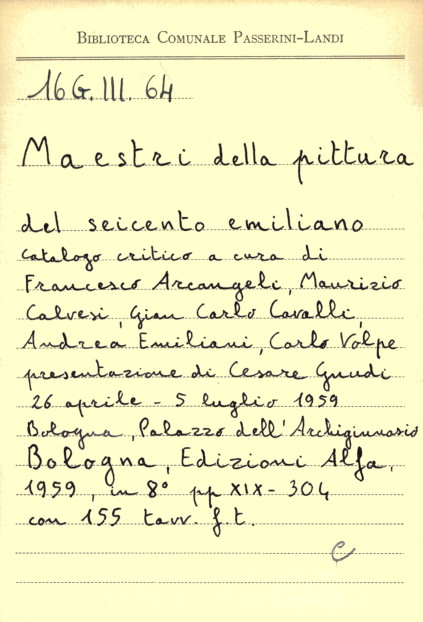 BIBLIOTECA COMUNALE PASSERINI-LANDI
16 G. III. 64
Maestri della pittura
del seicento emiliano
catalogo critico a cura di
Francesco Arcangeli, Maurizio
Calvesi, Gian Carlo Cavalli,
Andrea Emiliani, Carlo Volpe
presentazione di Cesare Gnudi
26 aprile - 5 luglio 1959
Bologna, Palazzo dell'Archiginnasio
Bologna, Edizioni Alfa,
1959, in 8° pp XIX - 304
con 155 tavv. f.t.
C